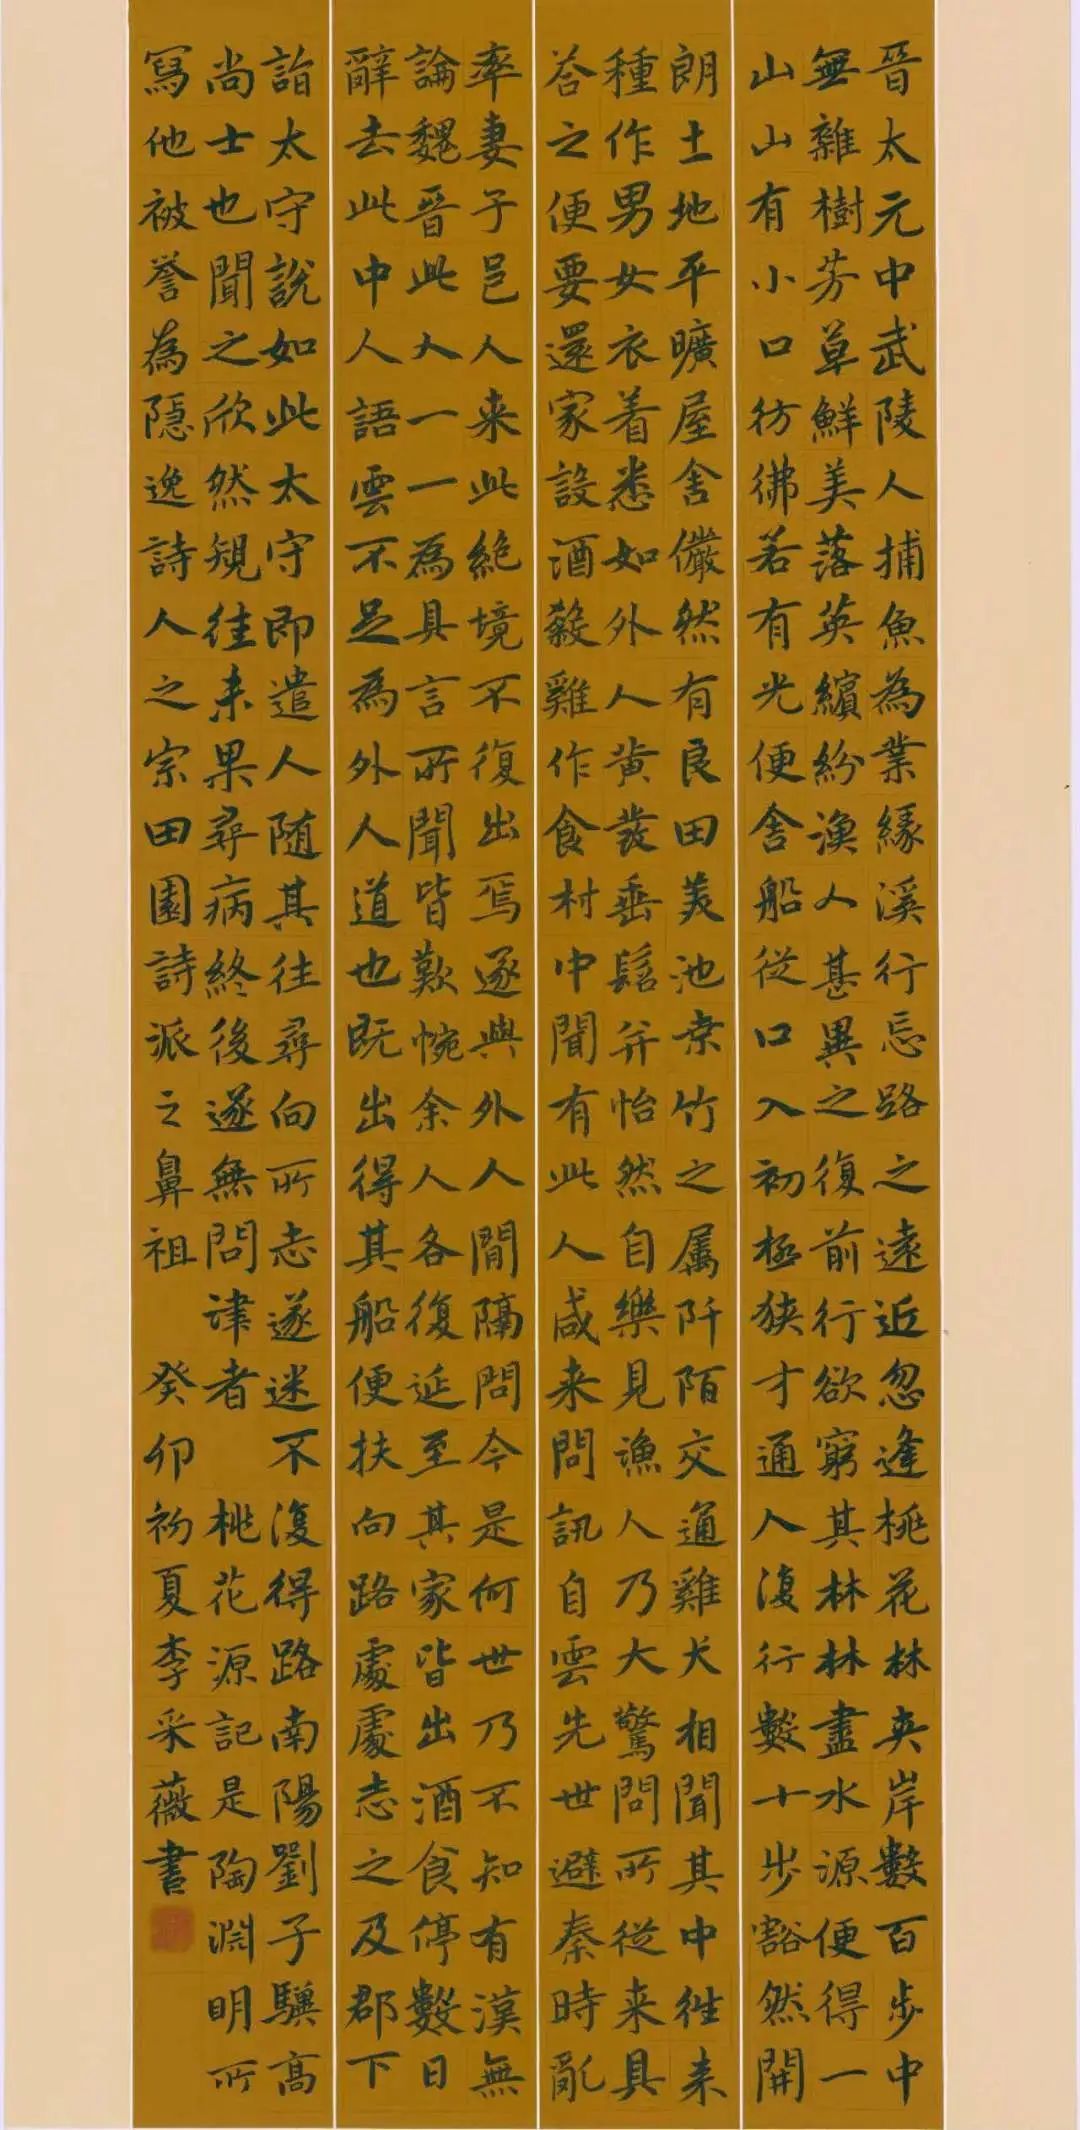 晉太元中武陵人捕魚為業緣溪行忘路之遠近忽逢桃花林夾岸數百步中
無雜樹芳草鮮美落英繽紛漁人甚異之復前行欲窮其林林盡水源便得一
山山有小口彷彿若有光便舍船從口入初極狹才通人復行數十步豁然開
朗土地平曠屋舍儼然有良田美池桑竹之属阡陌交通雞犬相聞其中往来
種作男女衣着悉如外人黃发垂髫并怡然自樂見漁人乃大驚問所從来具
荅之便要還家設酒殺雞作食村中聞有此人咸来問訊自雲先世避秦時亂
率妻子邑人来此絕境不復出焉遂與外人間隔問今是何世乃不知有漢無
論魏晉此人一一為具言所聞皆歎惋余人各復延至其家皆出酒食停數日
辭去此中人語雲不足為外人道也既出得其船便扶向路處處志之及郡下
詣太守說如此太守即遣人随其往尋向所志遂迷不復得路南陽劉子驥高
尚士也聞之欣然規往未果尋病終後遂無問津者 桃花源記是陶淵明所
寫他被誉為隱逸詩人之宗田園詩派之鼻祖 癸卯初夏李采薇書